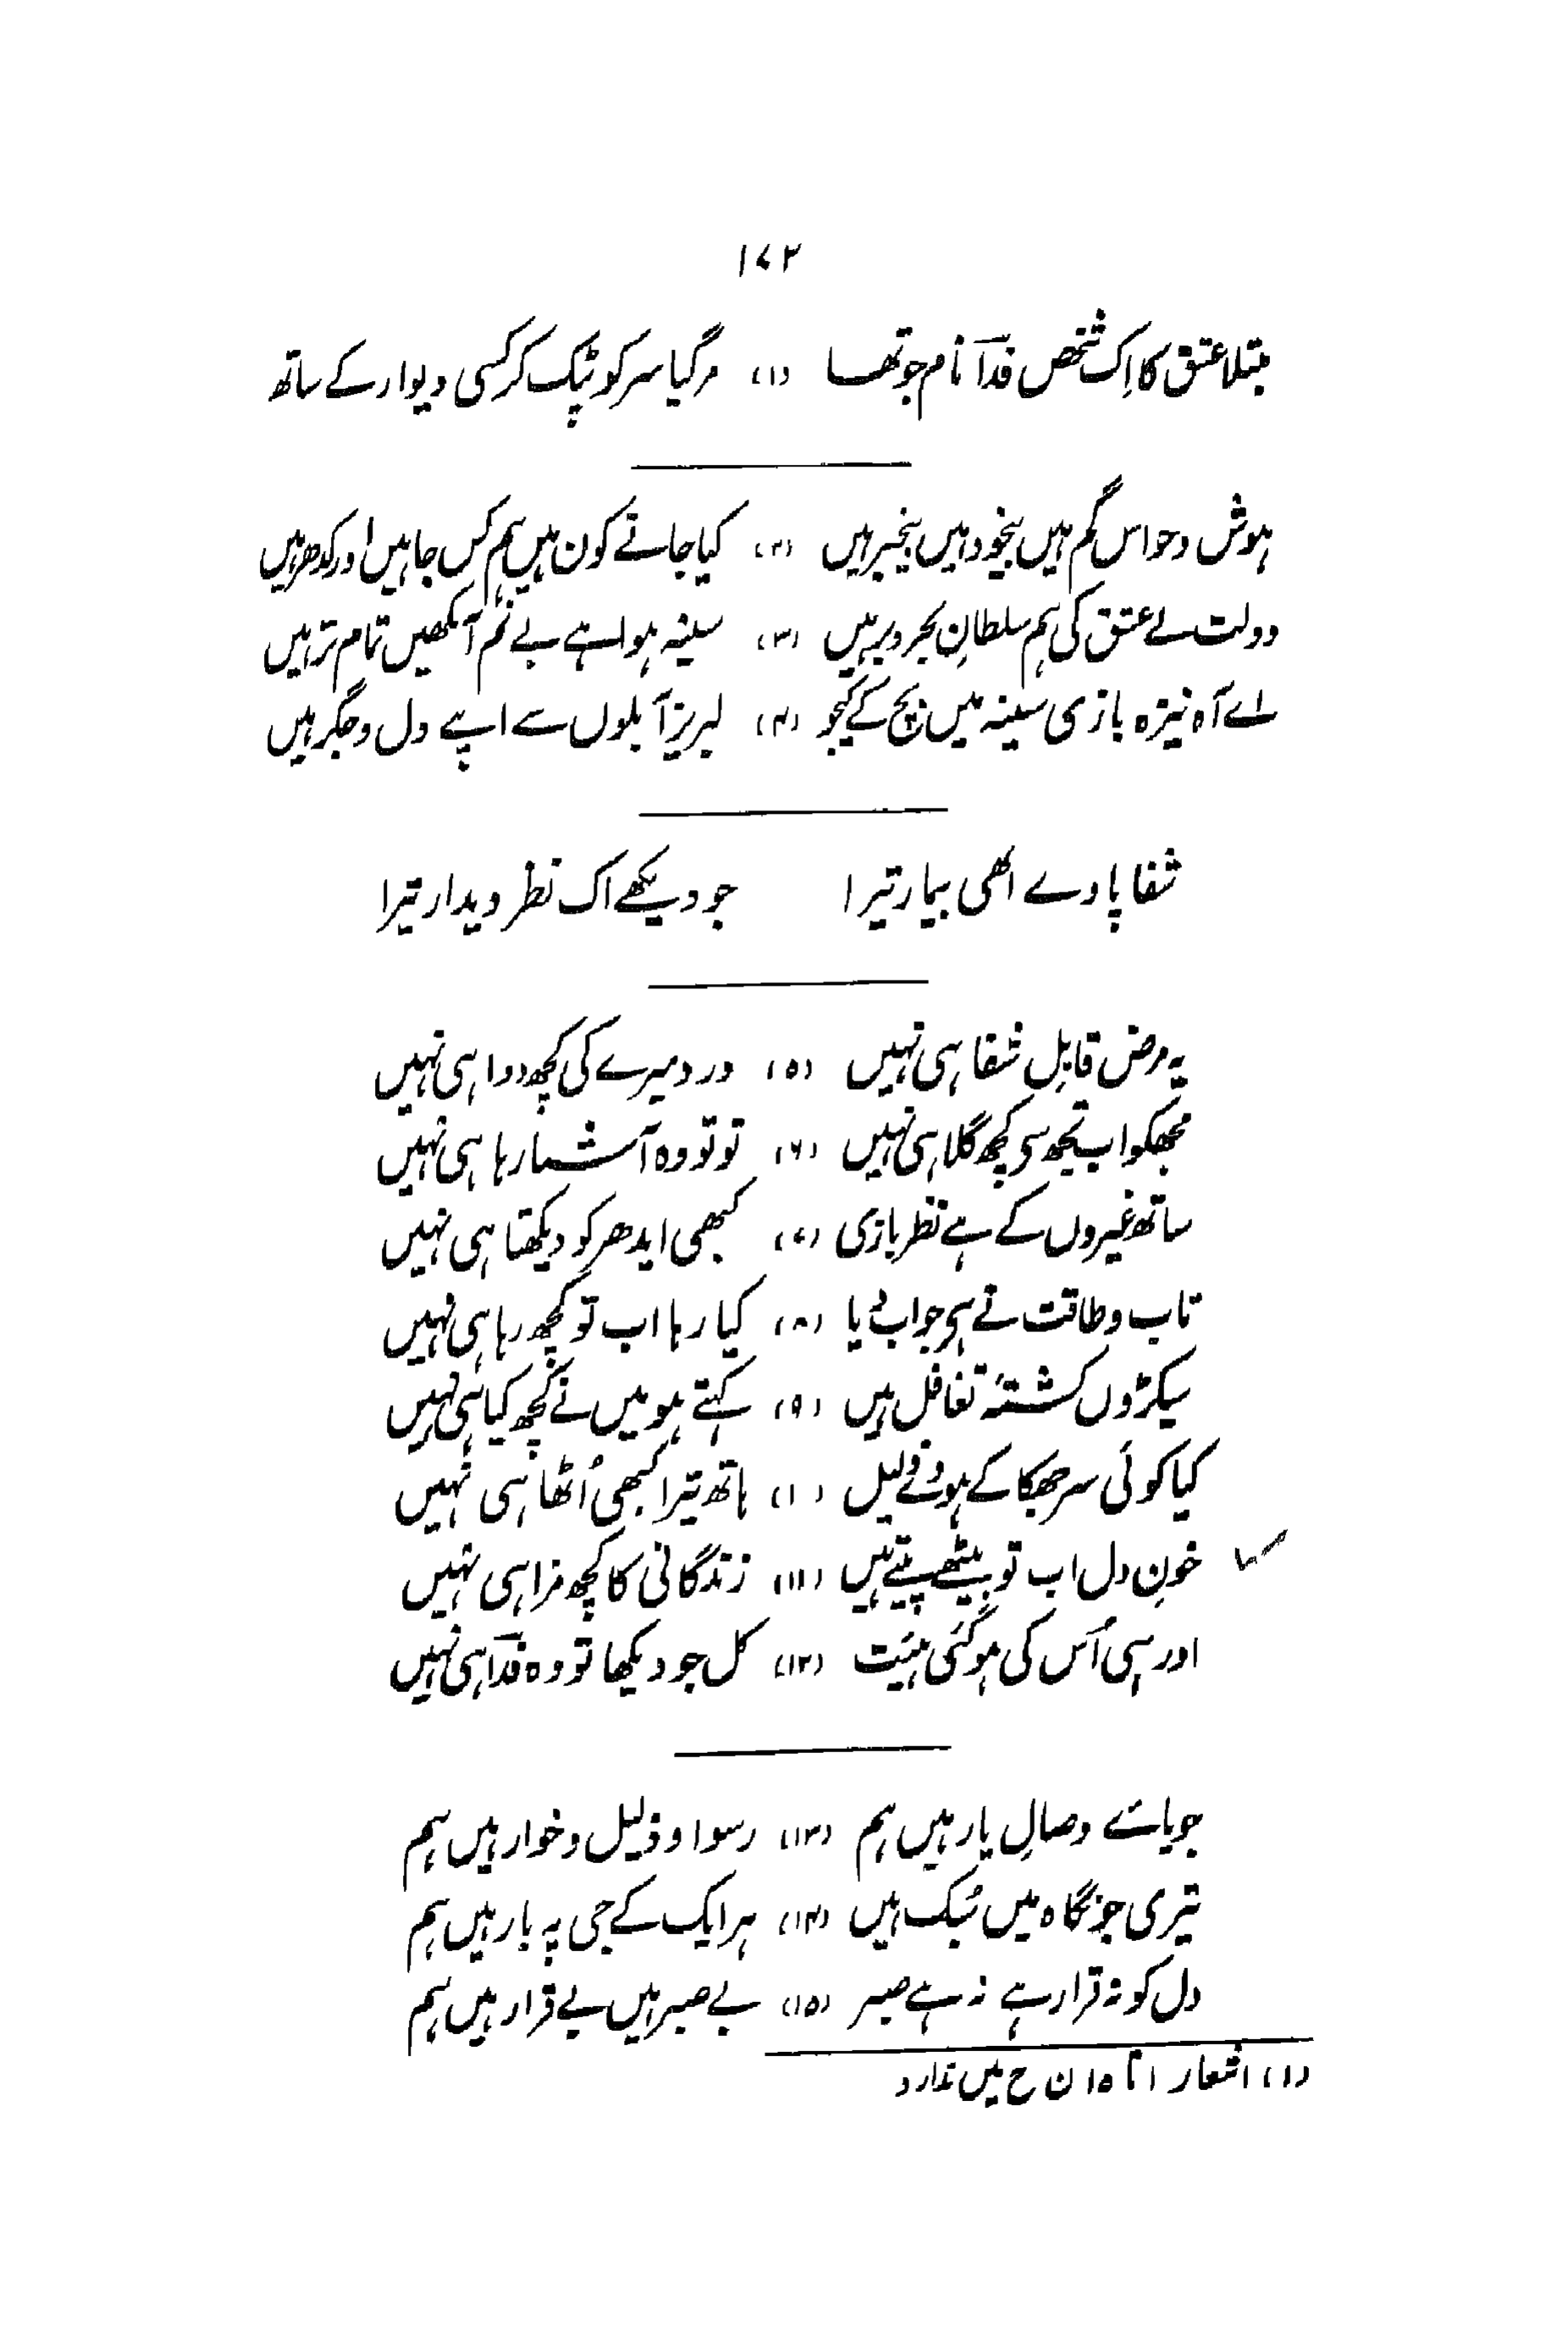 ۱۷۲
مبتلا عشق کا اِک شخص فداؔ نام جو تھا (۱) مر گیا سر کو پٹک کر کسی دیوار کے ساتھ
ہوش و حواس گم ہیں بیخود ہیں بیخبر ہیں (۲) کیا جانے کون ہیں ہم کس جا ہیں اور کدھر ہیں
دولت سے عشق کی ہم سلطانِ بحر و بر ہیں (۳) سینہ ہوا ہے بے نم آنکھیں تمام تر ہیں
اے آہ نیزہ بازی سینہ میں بچ کے کیجو (۴) لبریز آبلوں سے اپنے دل و جگر ہیں
شفا پاوے ابھی بیمار تیرا جو دیکھے اک نظر دیدار تیرا
یہ مرض قابلِ شفا ہی نہیں (۵) درد میرے کی کچھ دوا ہی نہیں
مجھکو اب تجھ سی کچھ گلا ہی نہیں (۶) تو تو وہ آشنا رہا ہی نہیں
ساتھ غیروں کے ہے نظر بازی (۷) کبھی ایدھر کو دیکھتا ہی نہیں
تاب و طاقت نے ہی جواب دیا (۸) کیا رہا اب تو کچھ رہا ہی نہیں
سیکڑوں کشتۂ تغافل ہیں (۹) کہتے ہو میں نے کچھ کیا ہی نہیں
کیا کوئی سر جھکا کے ہووے ذلیل (۱۰) ہاتھ تیرا کبھی اُٹھا ہی نہیں
خونِ دل اب تو بیٹھے پیتے ہیں (۱۱) زندگانی کا کچھ مزا ہی نہیں
اور سی اُس کی ہو گئی ہیئت (۱۲) کل جو دیکھا تو وہ فداؔ ہی نہیں
جویائے وصالِ یار ہیں ہم (۱۳) رسوا و ذلیل و خوار ہیں ہم
تیری جو نگاہ میں سُبک ہیں (۱۴) ہر ایک کے جی پہ بار ہیں ہم
دل کو نہ قرار ہے نہ ہے صبر (۱۵) بے صبر ہیں بے قرار ہیں ہم
(۱) اشعار ۱ تا ۱۵ ن ح میں ندارد